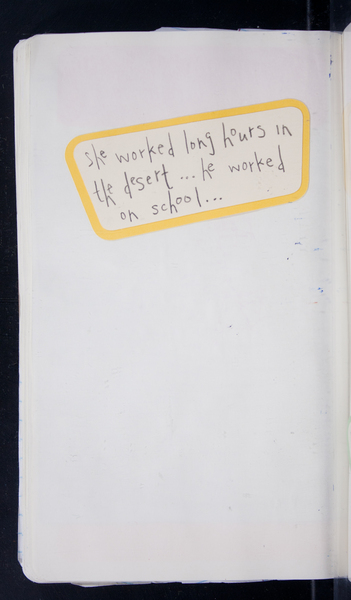 she worked long hours in
the desert ... he worked
on school...